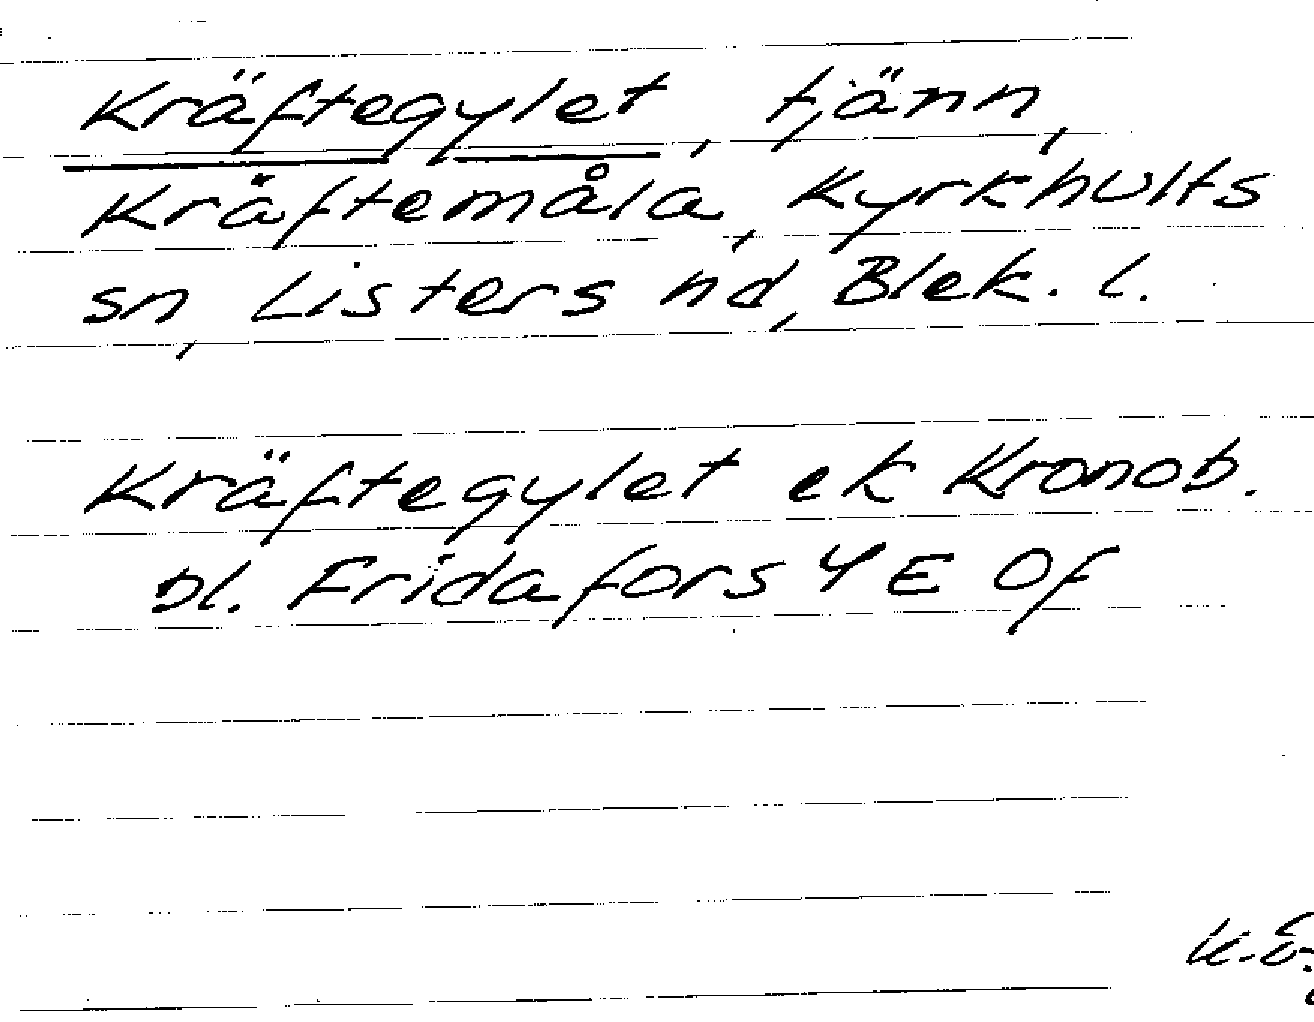 Kräftegylet, tjänn,
Kräftemåla, Kyrkhults
sn, Listers hd, Blek. l.
Kräftegylet ek Kronob.
bl. Fridafors 4 E 0f
K.E.